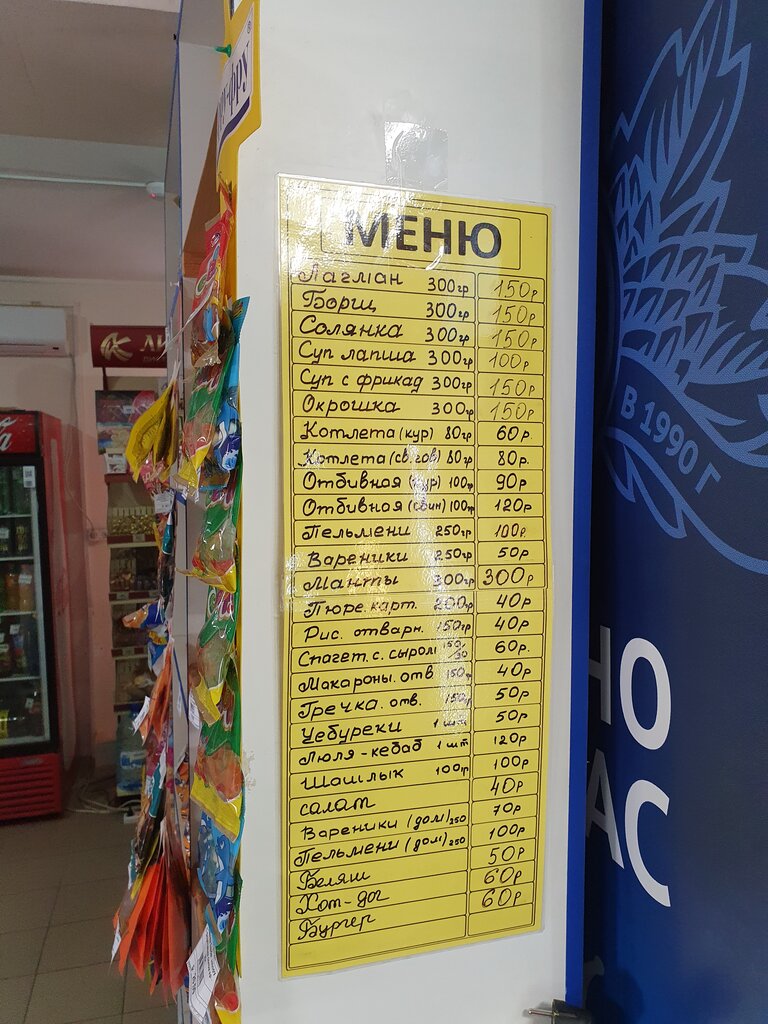 МЕНЮ
Лагман 300гр 150р
Борщ 300гр 150р
Солянка 300гр 150р
Суп лапша 300гр 100р
Суп с фрикад 300гр 150р
Окрошка 300гр 150р
Котлета (кур) 80гр 60р
Котлета (св.гов) 80гр 80р.
Отбивная (кур) 100гр 90р
Отбивная (свин) 100гр 120р
Пельмени 250гр 100р.
Вареники 250гр 50р
Манты 300гр 300р
Пюре. карт. 200гр 40р
Рис. отварн. 150гр 40р
Спагет. с. сыром 150/30 60р.
Макароны. отв 150гр 40р
Гречка. отв. 150гр 50р
Чебуреки 1 шт 50р
Люля-кебаб 1 шт 120р
Шашлык 100гр 100р
салат 40р
Вареники (дом) 250 70р
Пельмени (дом) 250 100р
Беляш 50р
Хот-дог 60р
Бургер 60р
В 1990 Г
НО
АС